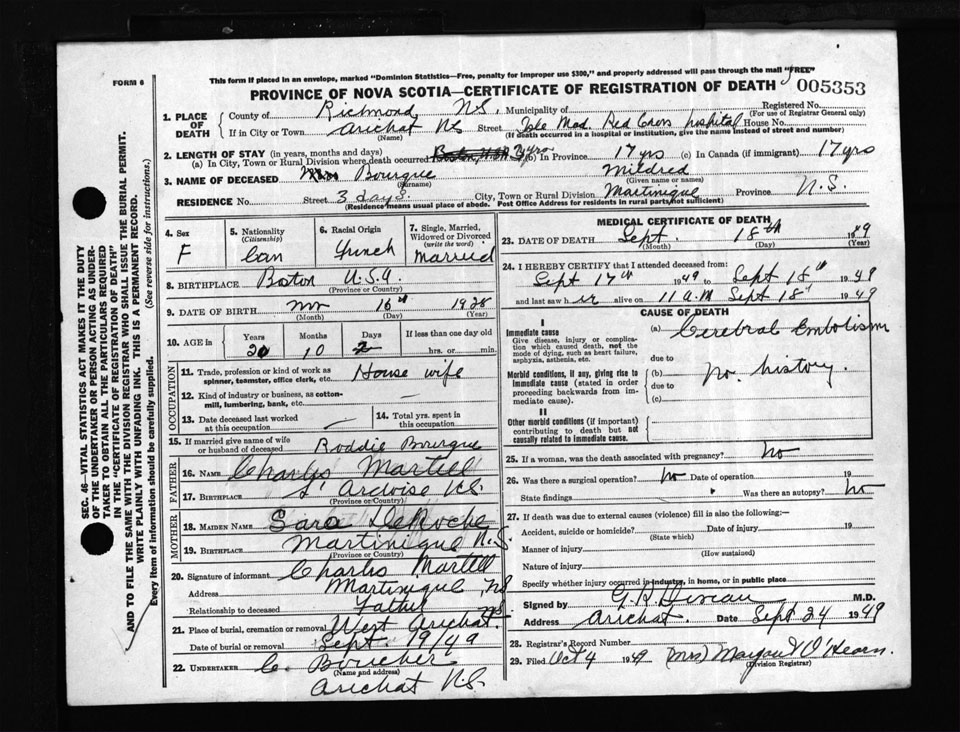 This form if placed in an envelope, marked "Dominion Statistics—Free, penalty for improper use $300," and properly addressed will pass through the mail "FREE"
FORM 6
PROVINCE OF NOVA SCOTIA—CERTIFICATE OF REGISTRATION OF DEATH
005353
SEC. 46—VITAL STATISTICS ACT MAKES IT THE DUTY
OF THE UNDERTAKER OR PERSON ACTING AS UNDER-
TAKER TO OBTAIN ALL THE PARTICULARS REQUIRED
IN THE "CERTIFICATE OF REGISTRATION OF DEATH"
AND TO FILE THE SAME WITH THE DIVISION REGISTRAR WHO SHALL ISSUE THE BURIAL PERMIT.
WRITE PLAINLY WITH UNFADING INK. THIS IS A PERMANENT RECORD.
Every item of information should be carefully supplied. (See reverse side for instructions.)
1. PLACE OF DEATH
County of Richmond N.S. Municipality of Registered No.
(For use of Registrar General only)
If in City or Town Arichat NS Street Isle Mad. Red Cross hospital House No.
(Name) (If death occurred in a hospital or institution, give the name instead of street and number)
2. LENGTH OF STAY (in years, months and days)
(a) In City, Town or Rural Division where death occurred 3 yrs (b) In Province 17 yrs (c) In Canada (if immigrant) 17 yrs
3. NAME OF DECEASED Bourque Mildred
(Surname) (Given name or names)
RESIDENCE No. Street 3 days City, Town or Rural Division Martinique Province N.S.
(Residence means usual place of abode. Post Office Address for residents in rural parts not sufficient)
4. Sex
F
5. Nationality
(Citizenship)
Can
6. Racial Origin
French
7. Single, Married, Widowed or Divorced
(write the word)
Married
8. BIRTHPLACE Boston U.S.A
(Province or Country)
9. DATE OF BIRTH Nov 16th 1928
(Month) (Day) (Year)
10. AGE in
Years Months Days If less than one day old
20 10 2 hrs. or min.
OCCUPATION
11. Trade, profession or kind of work as spinner, teamster, office clerk, etc. House wife
12. Kind of industry or business, as cotton-mill, lumbering, bank, etc.
13. Date deceased last worked at this occupation
14. Total yrs. spent in this occupation
15. If married give name of wife or husband of deceased Roddie Bourque
FATHER
16. NAME Charles Martell
17. BIRTHPLACE L'Ardoise NS.
(Province or Country)
MOTHER
18. MAIDEN NAME Sara DeRoche
19. BIRTHPLACE Martinique N.S.
(Province or Country)
20. Signature of informant Charles Martell
Address Martinique, NS
Relationship to deceased Father
21. Place of burial, cremation or removal West Arichat NS
Date of burial or removal Sept. 19/49
22. UNDERTAKER C. Boucher
(Name and address)
Arichat N.S.
MEDICAL CERTIFICATE OF DEATH
23. DATE OF DEATH Sept. 18th 1949
(Month) (Day) (Year)
24. I HEREBY CERTIFY that I attended deceased from:
Sept 17th 1949 to Sept 18th 1949
and last saw her alive on 11 a.m Sept 18th 1949
CAUSE OF DEATH
I
Immediate cause
Give disease, injury or complication which caused death, not the mode of dying, such as heart failure, asphyxia, asthenia, etc.
(a) Cerebral Embolism
due to
Morbid conditions, if any, giving rise to immediate cause (stated in order proceeding backwards from immediate cause).
(b) No. history.
due to
(c)
II
Other morbid conditions (if important) contributing to death but not causally related to immediate cause.
25. If a woman, was the death associated with pregnancy? No
26. Was there a surgical operation? No Date of operation 19
State findings Was there an autopsy? No
27. If death was due to external causes (violence) fill in also the following:—
Accident, suicide or homicide? Date of injury 19
(State which)
Manner of injury
(How sustained)
Nature of injury
Specify whether injury occurred in industry, in home, or in public place
Signed by M.D.
Address Arichat. Date Sept 24 1949
28. Registrar's Record Number
29. Filed Oct 4 1949 (Mrs) Margaret O'Hearn.
(Division Registrar)